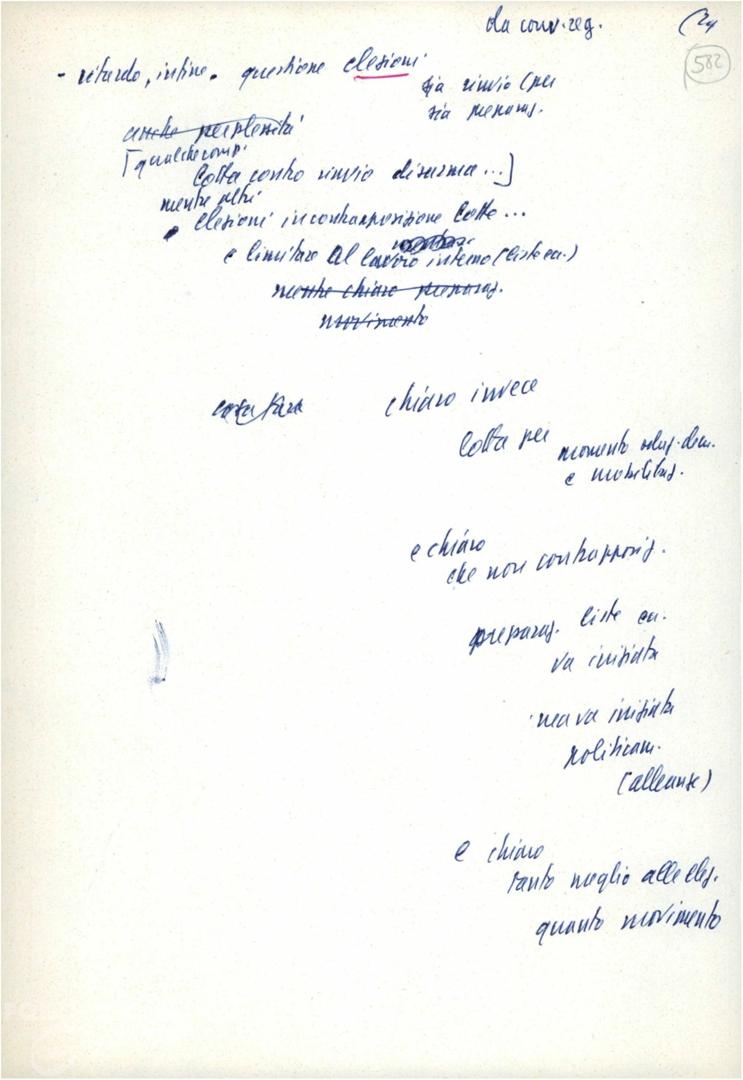 da conv. reg.
(24
582
- ritardo, infine, questione elezioni
sia rinvio (per
sia preparaz.
anche perplessità
[qualche comp.
lotta contro rinvio disarma ...]
mentre altri
elezioni in contrapposizione lotte ...
e limitare al lavoro interno (liste ecc.)
mentre chiaro preparaz.
movimento
cosa fare
chiaro invece
lotta per
momento
e mobilitaz.
e chiaro
che non contrapposiz.
preparaz. liste ecc.
va iniziata
ma va iniziata
politicam.
(alleanze)
e chiaro
tanto meglio alle elez.
quanto movimento